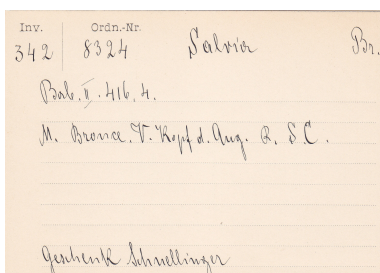 Inv. Ordn.-Nr.
342 8324 Salvia Br.
Bab. II. 416, 4.
M. Bronce. V. Kopf d. Aug. R. S.C.
Geschenk Schnellinger